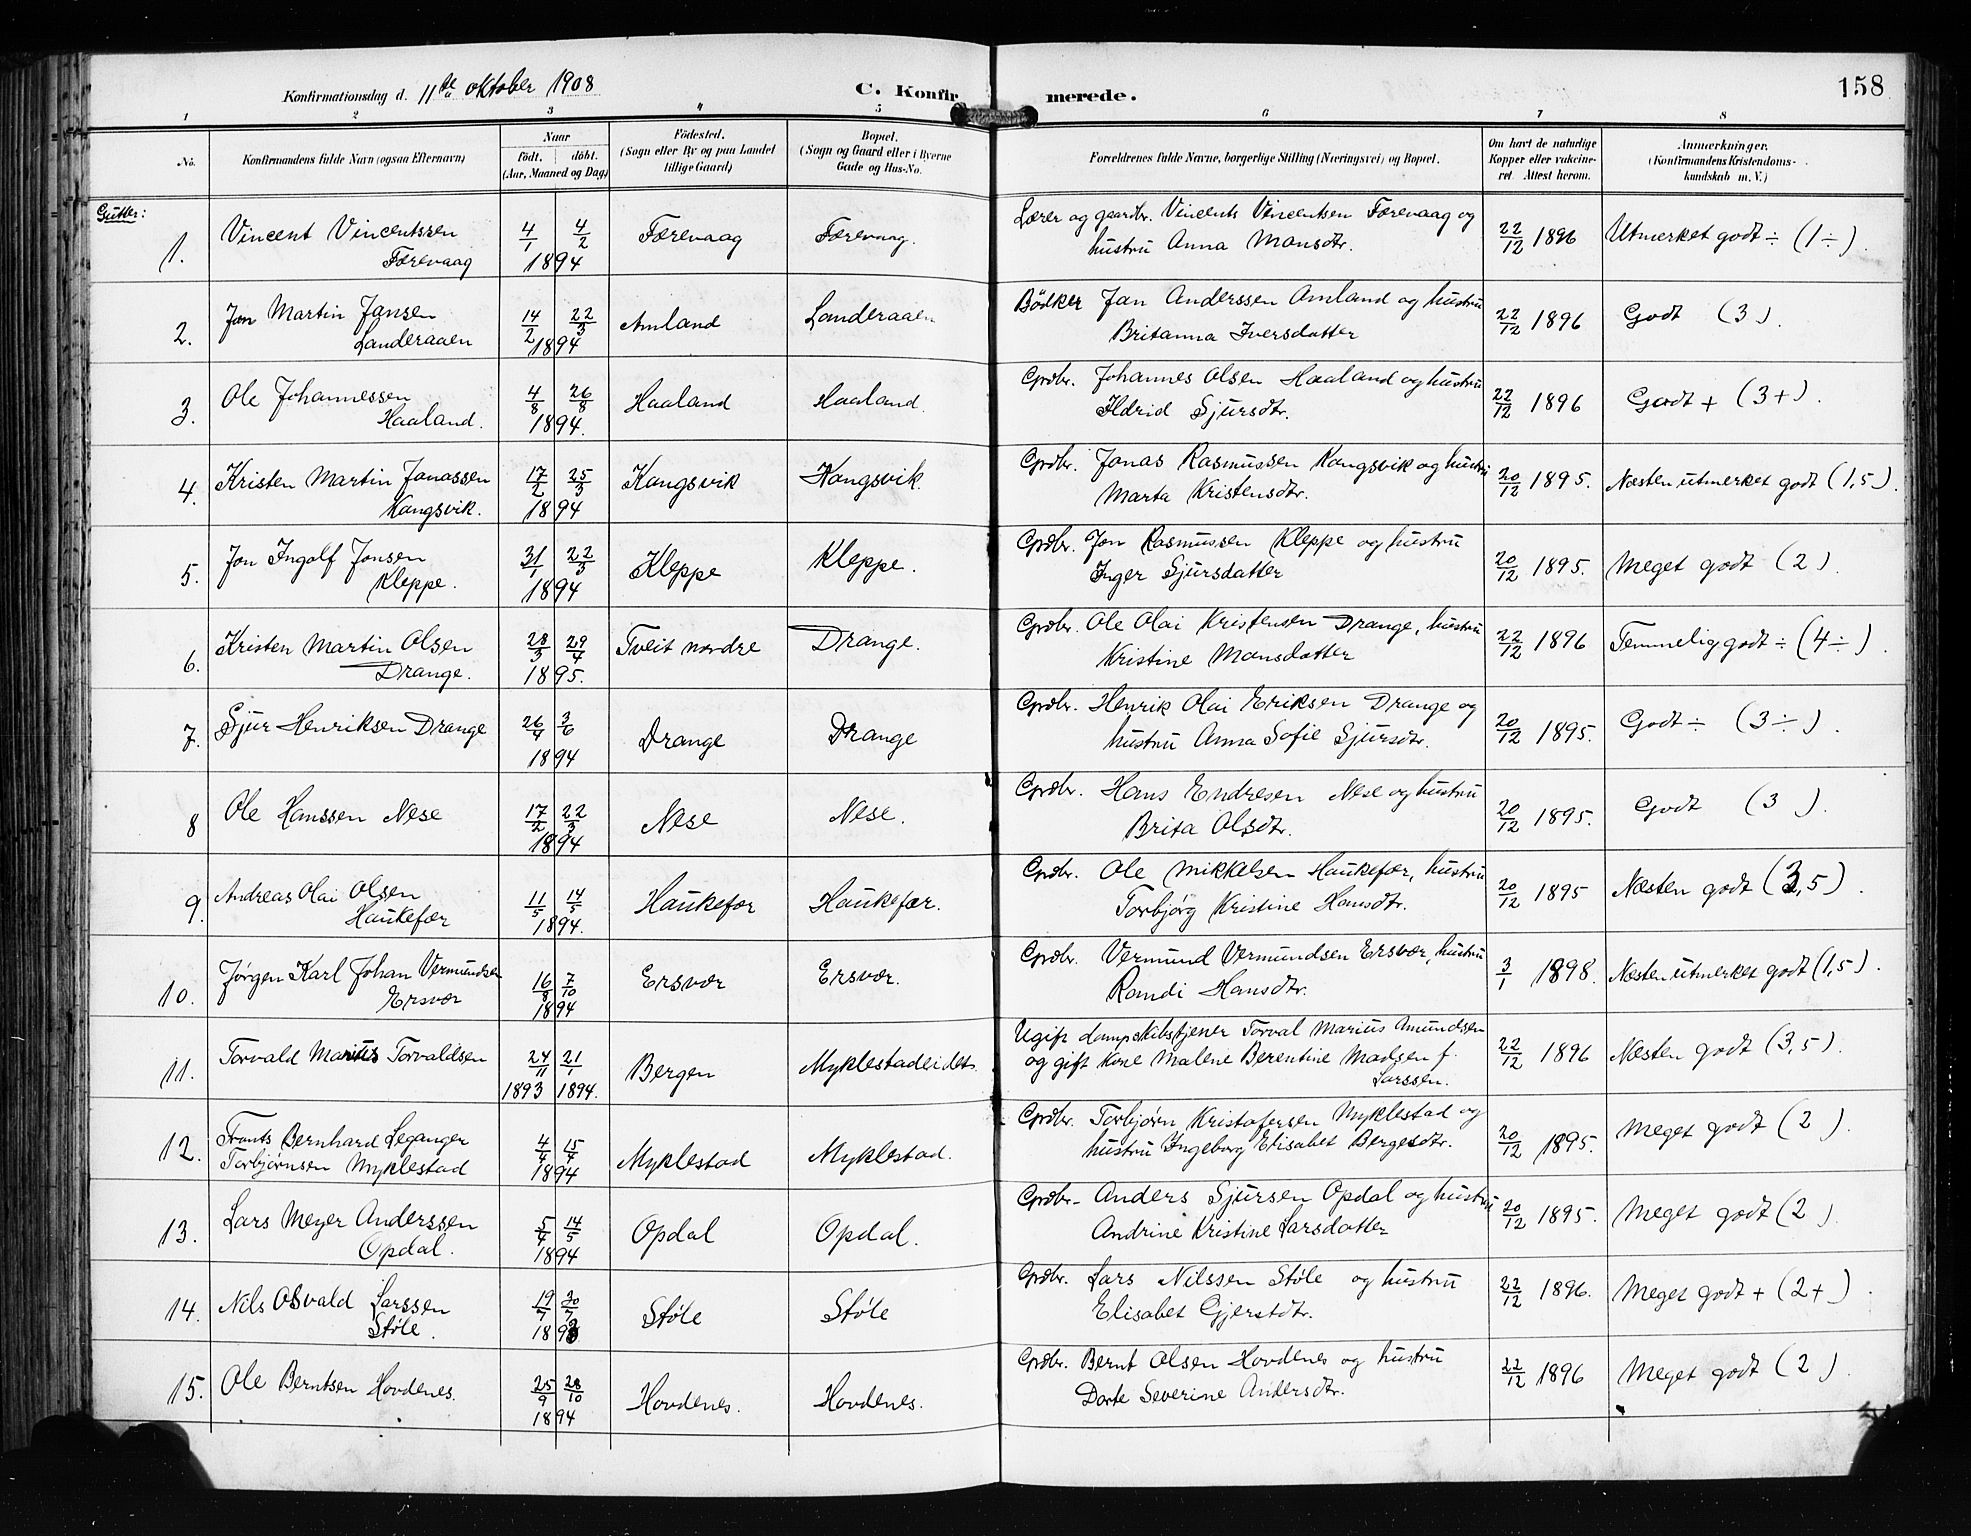 158
Konfirmationsdag d. 11te oktober 1908
C. Konfirmerede.
1 2 3 4 5 6 7 8
No. Konfirmandens fulde Navn (ogsaa Efternavn) Naar födt. döbt. (Aar, Maaned og Dag) Födested. (Sogn eller By og paa Landet tillige Gaard) Bopæl. (Sogn og Gaard eller i Byerne Gade og Hus-No. Forældrenes fulde Navne, borgerlige Stilling (Næringsvei) og Bopæl. Om havt de naturlige Kopper eller vakcineret. Attest herom. Anmerkninger. (Konfirmandens Kristendomskundskab m. V.)
Gutter:
1. Vincent Vincentssen Færevaag 4/1 4/2 1894 Færevaag Færevaag. Lærer og gaardbr. Vincents Vincentsen Færevaag og hustru Anna Monsdtr. 22/12 1896 Utmerket godt ÷ (1 ÷).
2. Jon Martin Jansen Landeraaen 14/2 22/3 1894 Amland Landeraaen Bödker Jan Anderssen Amland og hustru Britanna Iversdatter 22/12 1896 Godt (3).
3. Ole Johannessen Haaland. 4/8 26/8 1894. Haaland Haaland. Grdbr. Johannes Olsen Haaland og hustru Ildrid Sjursdtr. 22/12 1896 Godt + (3+).
4. Kristen Martin Jonassen Kangsvik. 17/2 25/3 1894 Kangsvik Kangsvik. Grdbr. Jonas Rasmussen Kangsvik og hustru Marta Kristensdtr. 20/12 1895. Næsten utmerket godt (1,5).
5. Jon Ingolf Jonsen Kleppe. 31/1 22/3 1894 Kleppe Kleppe. Grdbr. Jon Rasmussen Kleppe og hustru Inger Sjursdatter 20/12 1895. Meget godt (2).
6. Kristen Martin Olsen Drange. 28/3 29/4 1895. Tveit nordre Drange. Grdbr. Ole Olai Kristensen Drange, hustru Kristine Monsdatter 22/12 1896 Temmelig godt ÷ (4 ÷).
7. Sjur Henriksen Drange 26/4 3/6 1894 Drange Drange Grdbr. Henrik Olai Eriksen Drange og hustru Anna Sofie Sjursdtr. 20/12 1895. Godt ÷ (3 ÷).
8 Ole Hanssen Nese 17/2 22/3 1894 Nese Nese. Grdbr. Hans Endresen Nese og hustru Brita Olsdtr. 20/12 1895. Godt (3).
9. Andreas Olai Olsen Haukefær 11/5 14/5 1894. Haukefær Haukefær. Grdbr. Ole Mikkelsen Haukefær, hustru Torbjørg Kristine Hansdtr. 20/12 1895 Næsten godt (3,5).
10. Jørgen Karl Johan Vermundsen Ersvær 16/8 7/10 1894 Ersvær Ersvær. Grdbr. Vermund Vermundsen Ersvær, hustru Randi Hansdtr. 3/1 1898. Næsten utmerket godt (1,5).
11. Torvald Marius Torvaldsen 24/11 21/1 1893 1894. Bergen Myklestadeidet. Ugift dampskibstjener Torval Marius Amundsen og gift kone Malene Berentine Madsen f. Larssen. 22/12 1896 Næsten godt (3,5).
12. Frants Bernhard Leganger Torbjørnsen Myklestad 4/4 15/4 1894 Myklestad Myklestad. Grdbr. Torbjørn Kristofersen Myklestad og hustru Ingeborg Elisabet Bergesdtr. 20/12 1895. Meget godt (2).
13. Lars Meyer Anderssen Opdal. 5/4 14/5 1894 Opdal Opdal. Grdbr. Anders Sjursen Opdal og hustru Andrine Kristine Larsdatter 20/12 1895. Meget godt (2).
14. Nils Osvald Larssen Støle. 19/7 30/7 1893 Støle Støle Grdbr. Lars Nilssen Støle og hustru Elisabet Gjerstdtr. 22/12 1896. Meget godt + (2+).
15. Ole Berntsen Hovdenes. 25/9 28/10 1894 Hovdenes. Hovdenes. Grdbr. Bernt Olsen Hovdenes og hustru Dorte Severine Andersdtr. 22/12 1896 Meget godt (2).